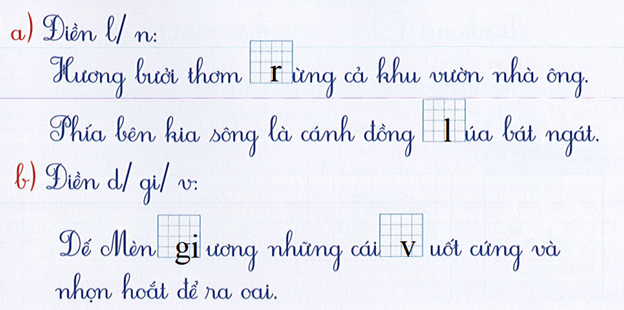 a) Điền l/ n:
Hương bưởi thơm rừng cả khu vườn nhà ông.
Phía bên kia sông là cánh đồng lúa bát ngát.
b) Điền d/ gi/ v:
Dế Mèn giương những cái vuốt cứng và
nhọn hoắt để ra oai.